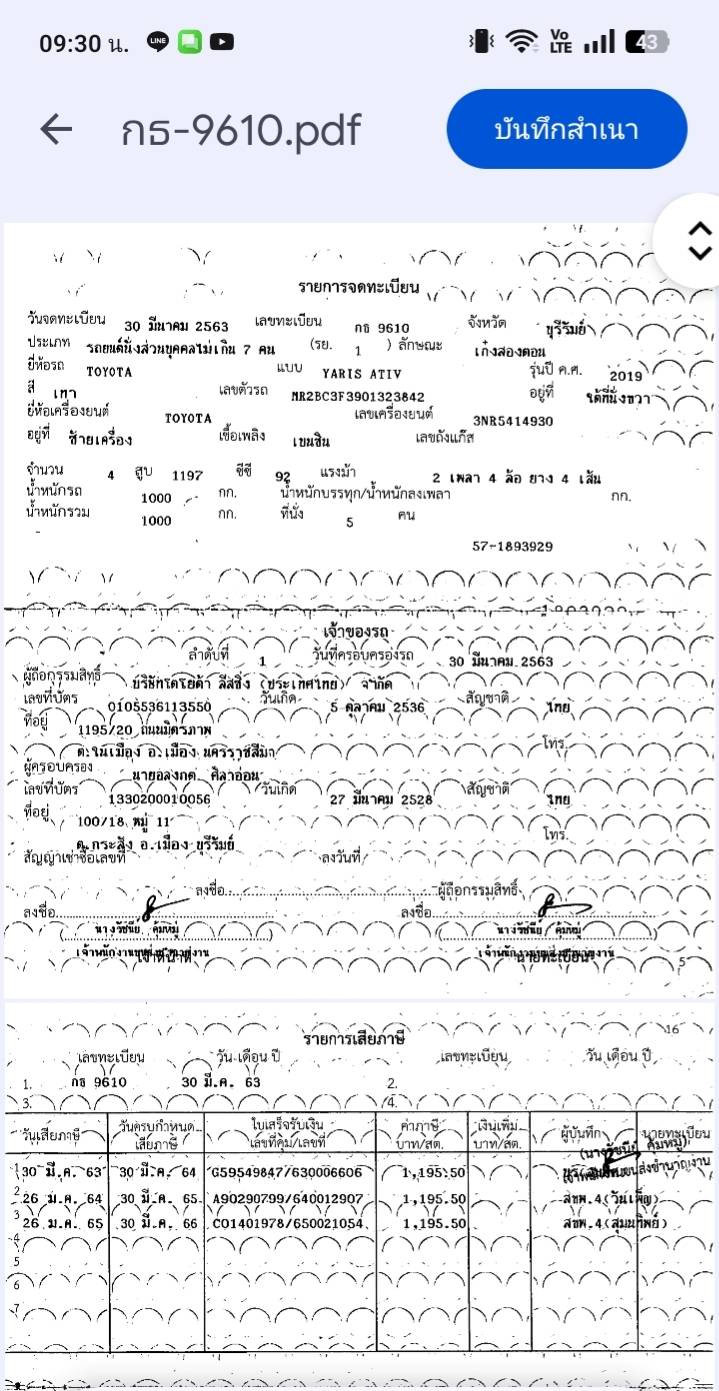 09:30 น. LINE Vo LTE 43
กธ-9610.pdf บันทึกสำเนา
รายการจดทะเบียน
วันจดทะเบียน 30 มีนาคม 2563 เลขทะเบียน กธ 9610 จังหวัด บุรีรัมย์
ประเภท รถยนต์นั่งส่วนบุคคลไม่เกิน 7 คน (รย. 1 ) ลักษณะ เก๋งสองตอน
ยี่ห้อรถ TOYOTA แบบ YARIS ATIV รุ่นปี ค.ศ. 2019
สี เทา เลขตัวรถ MR2BC3F3901323842 อยู่ที่ ใต้ที่นั่งขวา
ยี่ห้อเครื่องยนต์ TOYOTA เลขเครื่องยนต์ 3NR5414930
อยู่ที่ ซ้ายเครื่อง เชื้อเพลิง เบนซิน เลขถังแก๊ส
จำนวน 4 สูบ 1197 ซีซี 92 แรงม้า 2 เพลา 4 ล้อ ยาง 4 เส้น
น้ำหนักรถ 1000 กก. น้ำหนักบรรทุก/น้ำหนักลงเพลา กก.
น้ำหนักรวม 1000 กก. ที่นั่ง 5 คน
57-1893929
เจ้าของรถ
ลำดับที่ 1 วันที่ครอบครองรถ 30 มีนาคม 2563
ผู้ถือกรรมสิทธิ์ บริษัทโตโยต้า ลีสซิ่ง (ประเทศไทย) จำกัด
เลขที่บัตร 0105536113550 วันเกิด 5 ตุลาคม 2536 สัญชาติ ไทย
ที่อยู่ 1195/20 ถนนมิตรภาพ
ต.ในเมือง อ.เมือง นครราชสีมา โทร.
ผู้ครอบครอง นายอลงกต ศิลาอ่อน
เลขที่บัตร 1330200010056 วันเกิด 27 มีนาคม 2528 สัญชาติ ไทย
ที่อยู่ 100/18 หมู่ 11
ต.กระสัง อ.เมือง บุรีรัมย์ โทร.
สัญญาเช่าซื้อเลขที่ ลงวันที่
ลงชื่อ ผู้ถือกรรมสิทธิ์
ลงชื่อ ลงชื่อ
นางรัชนีย์ คุ้มหมู่ นางรัชนีย์ คุ้มหมู่
เจ้าหน้าที่ นายทะเบียน
5
16
รายการเสียภาษี
เลขทะเบียน วัน เดือน ปี เลขทะเบียน วัน เดือน ปี
1. กธ 9610 30 มี.ค. 63 2.
3. 4.
วันเสียภาษี วันครบกำหนดเสียภาษี ใบเสร็จรับเงิน เลขที่คุม/เลขที่ ค่าภาษี บาท/สต. เงินเพิ่ม บาท/สต. ผู้บันทึก นายทะเบียน
(นางรัชนีย์ คุ้มหมู่)
1 30 มี.ค. 63 30 มี.ค. 64 G59549847/630006606 1,195.50
2 26 ม.ค. 64 30 มี.ค. 65 A90290799/640012907 1,195.50 สขพ.4(วันเพ็ญ)
3 26 ม.ค. 65 30 มี.ค. 66 C01401978/650021054 1,195.50 สขพ.4(สุมนทิพย์)
4
5
6
7